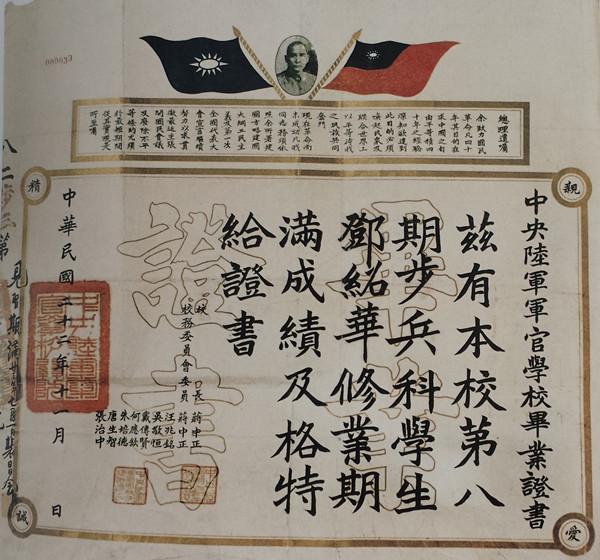 000033
總理遺囑
余致力國民
革命凡四十
年其目的在
求中國之自
由平等積四
十年之經驗
深知欲達到
此目的必須
喚起民眾及
聯合世界上
以平等待我
之民族共同
奮鬥
現在革命尚
未成功凡我
同志務須依
照余所著建
國方略建國
大綱三民主
義及第一次
全國代表大
會宣言繼續
努力以求貫
澈最近主張
開國民會議
及廢除不平
等條約尤須
於最短期間
促其實現是
所至囑
親
愛
精
誠
中央陸軍軍官學校畢業證書
茲有本校第八
期步兵科學生
鄧紹華修業期
滿成績及格特
給證書
校長 蔣中正
校務委員會委員 蔣中正
汪兆銘
吳敬恒
戴傳賢
何應欽
朱培德
唐生智
張治中
中華民國二十二年十一月 日
證書